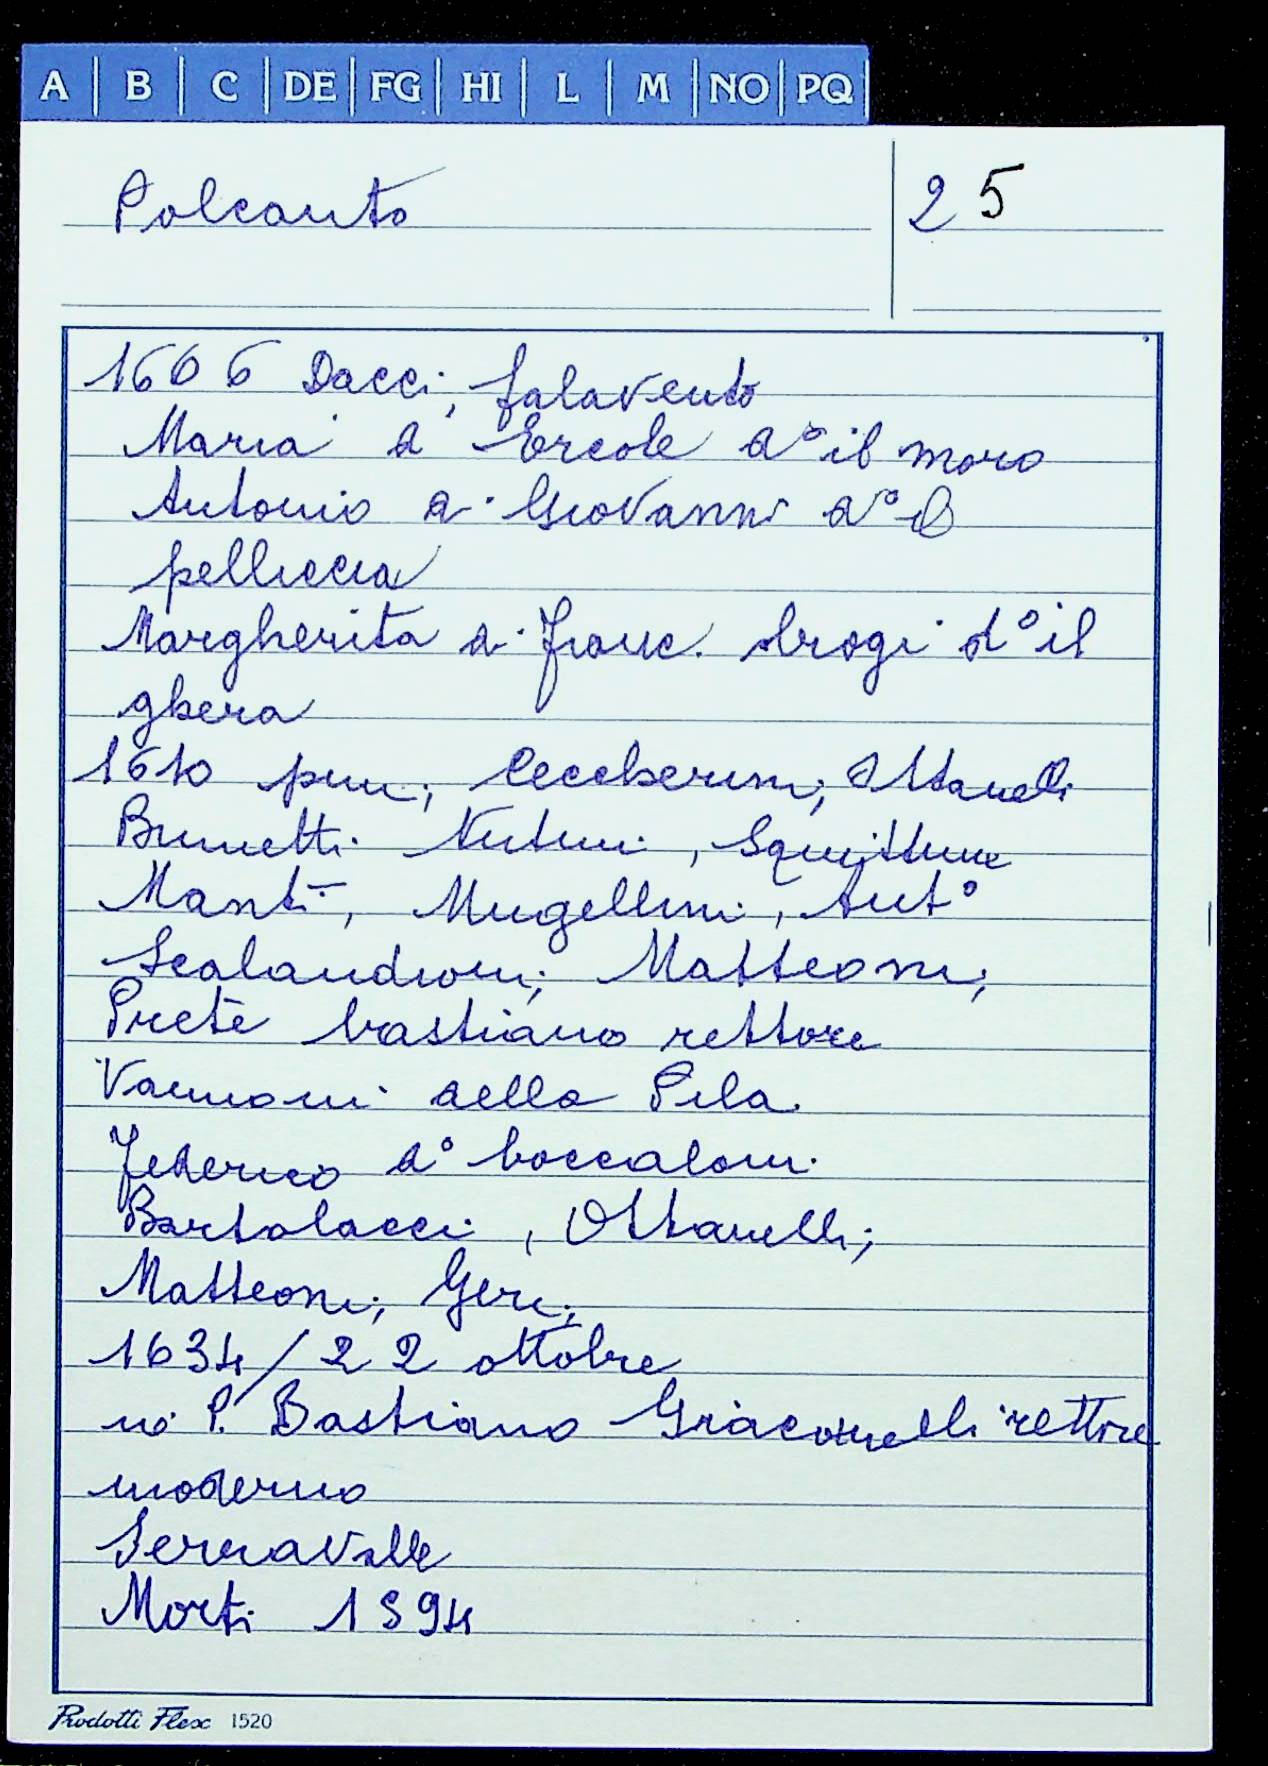 A B C DE FG HI L M NO PQ
Polcanto 25
1606 Dacci, falavento
Maria d Ercole d° il moro
Antonio d. Giovanni d° il
pelliccia
Margherita d. Franc. drogi d° il
ghera
1610 pini; Ceccherini; Ottanelli
Brunetti Nutini, Squittine
Manti, Mugellini, Ant°
Scalandroni; Matteoni;
Prete bastiano rettore
Vannoni della Pila
Federico d° boccaloni
Bartolacci, Ottanelli;
Matteoni; Geri;
1634/22 ottobre
P. Bastiano Giacomelli rettore
moderno
Serravalle
Morti 1594
Prodotti Flex 1520